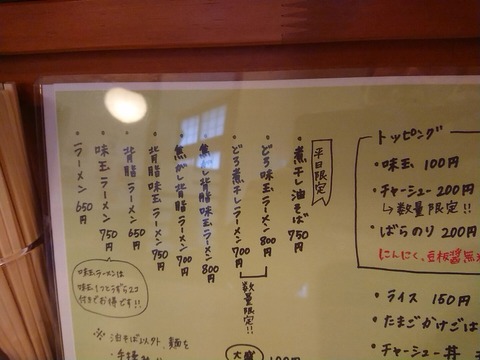 平日限定
・煮干し油そば 750円
・どろ味玉ラーメン 800円
・どろ煮干しラーメン 700円
数量限定!!
・焦がし背脂味玉ラーメン 800円
・焦がし背脂ラーメン 700円
・背脂味玉ラーメン 750円
・背脂ラーメン 650円
・味玉ラーメン 750円
・ラーメン 650円
味玉ラーメンは
味玉1つとうずら2コ
付きでお得です!!
※ 油そば以外、麺を
大盛
トッピング
・味玉 100円
・チャーシュー 200円
↳数量限定!!
・ばらのり 200円
にんにく、豆板醤無
・ライス 150円
・たまごかけごは
・チャーシュー丼